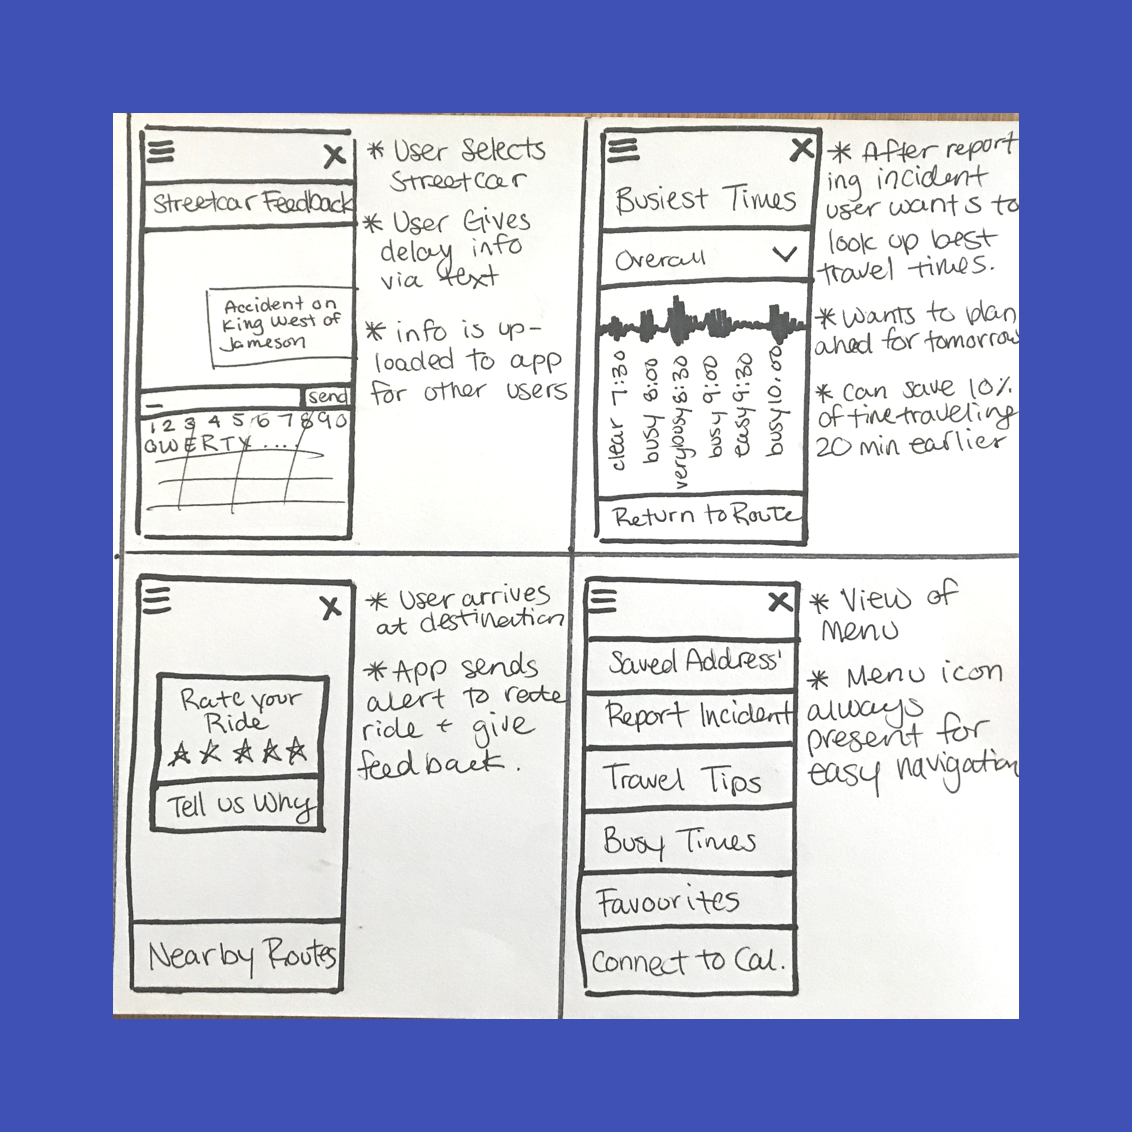 Streetcar Feedback
Accident on
King West of
Jameson
send
1 2 3 4 5 6 7 8 9 0
QWERTY....
* User Selects
Streetcar
* User Gives
delay info
via text
* info is up-
loaded to app
for other users
Busiest Times
Overall
clear 7:30
busy 8:00
verybusy 8:30
busy 9:00
easy 9:30
busy 10:00
Return to Route
* After report
ing incident
user wants to
look up best
travel times.
* Wants to plan
ahed for tomorrow
* Can save 10%
of time traveling
20 min earlier
Rate your
Ride
Tell us Why
Nearby Routes
* User arrives
at destination
* App sends
alert to rate
ride + give
feedback.
Saved Address'
Report Incident
Travel Tips
Busy Times
Favourites
Connect to Cal.
* View of
Menu
* Menu icon
always
present for
easy navigation